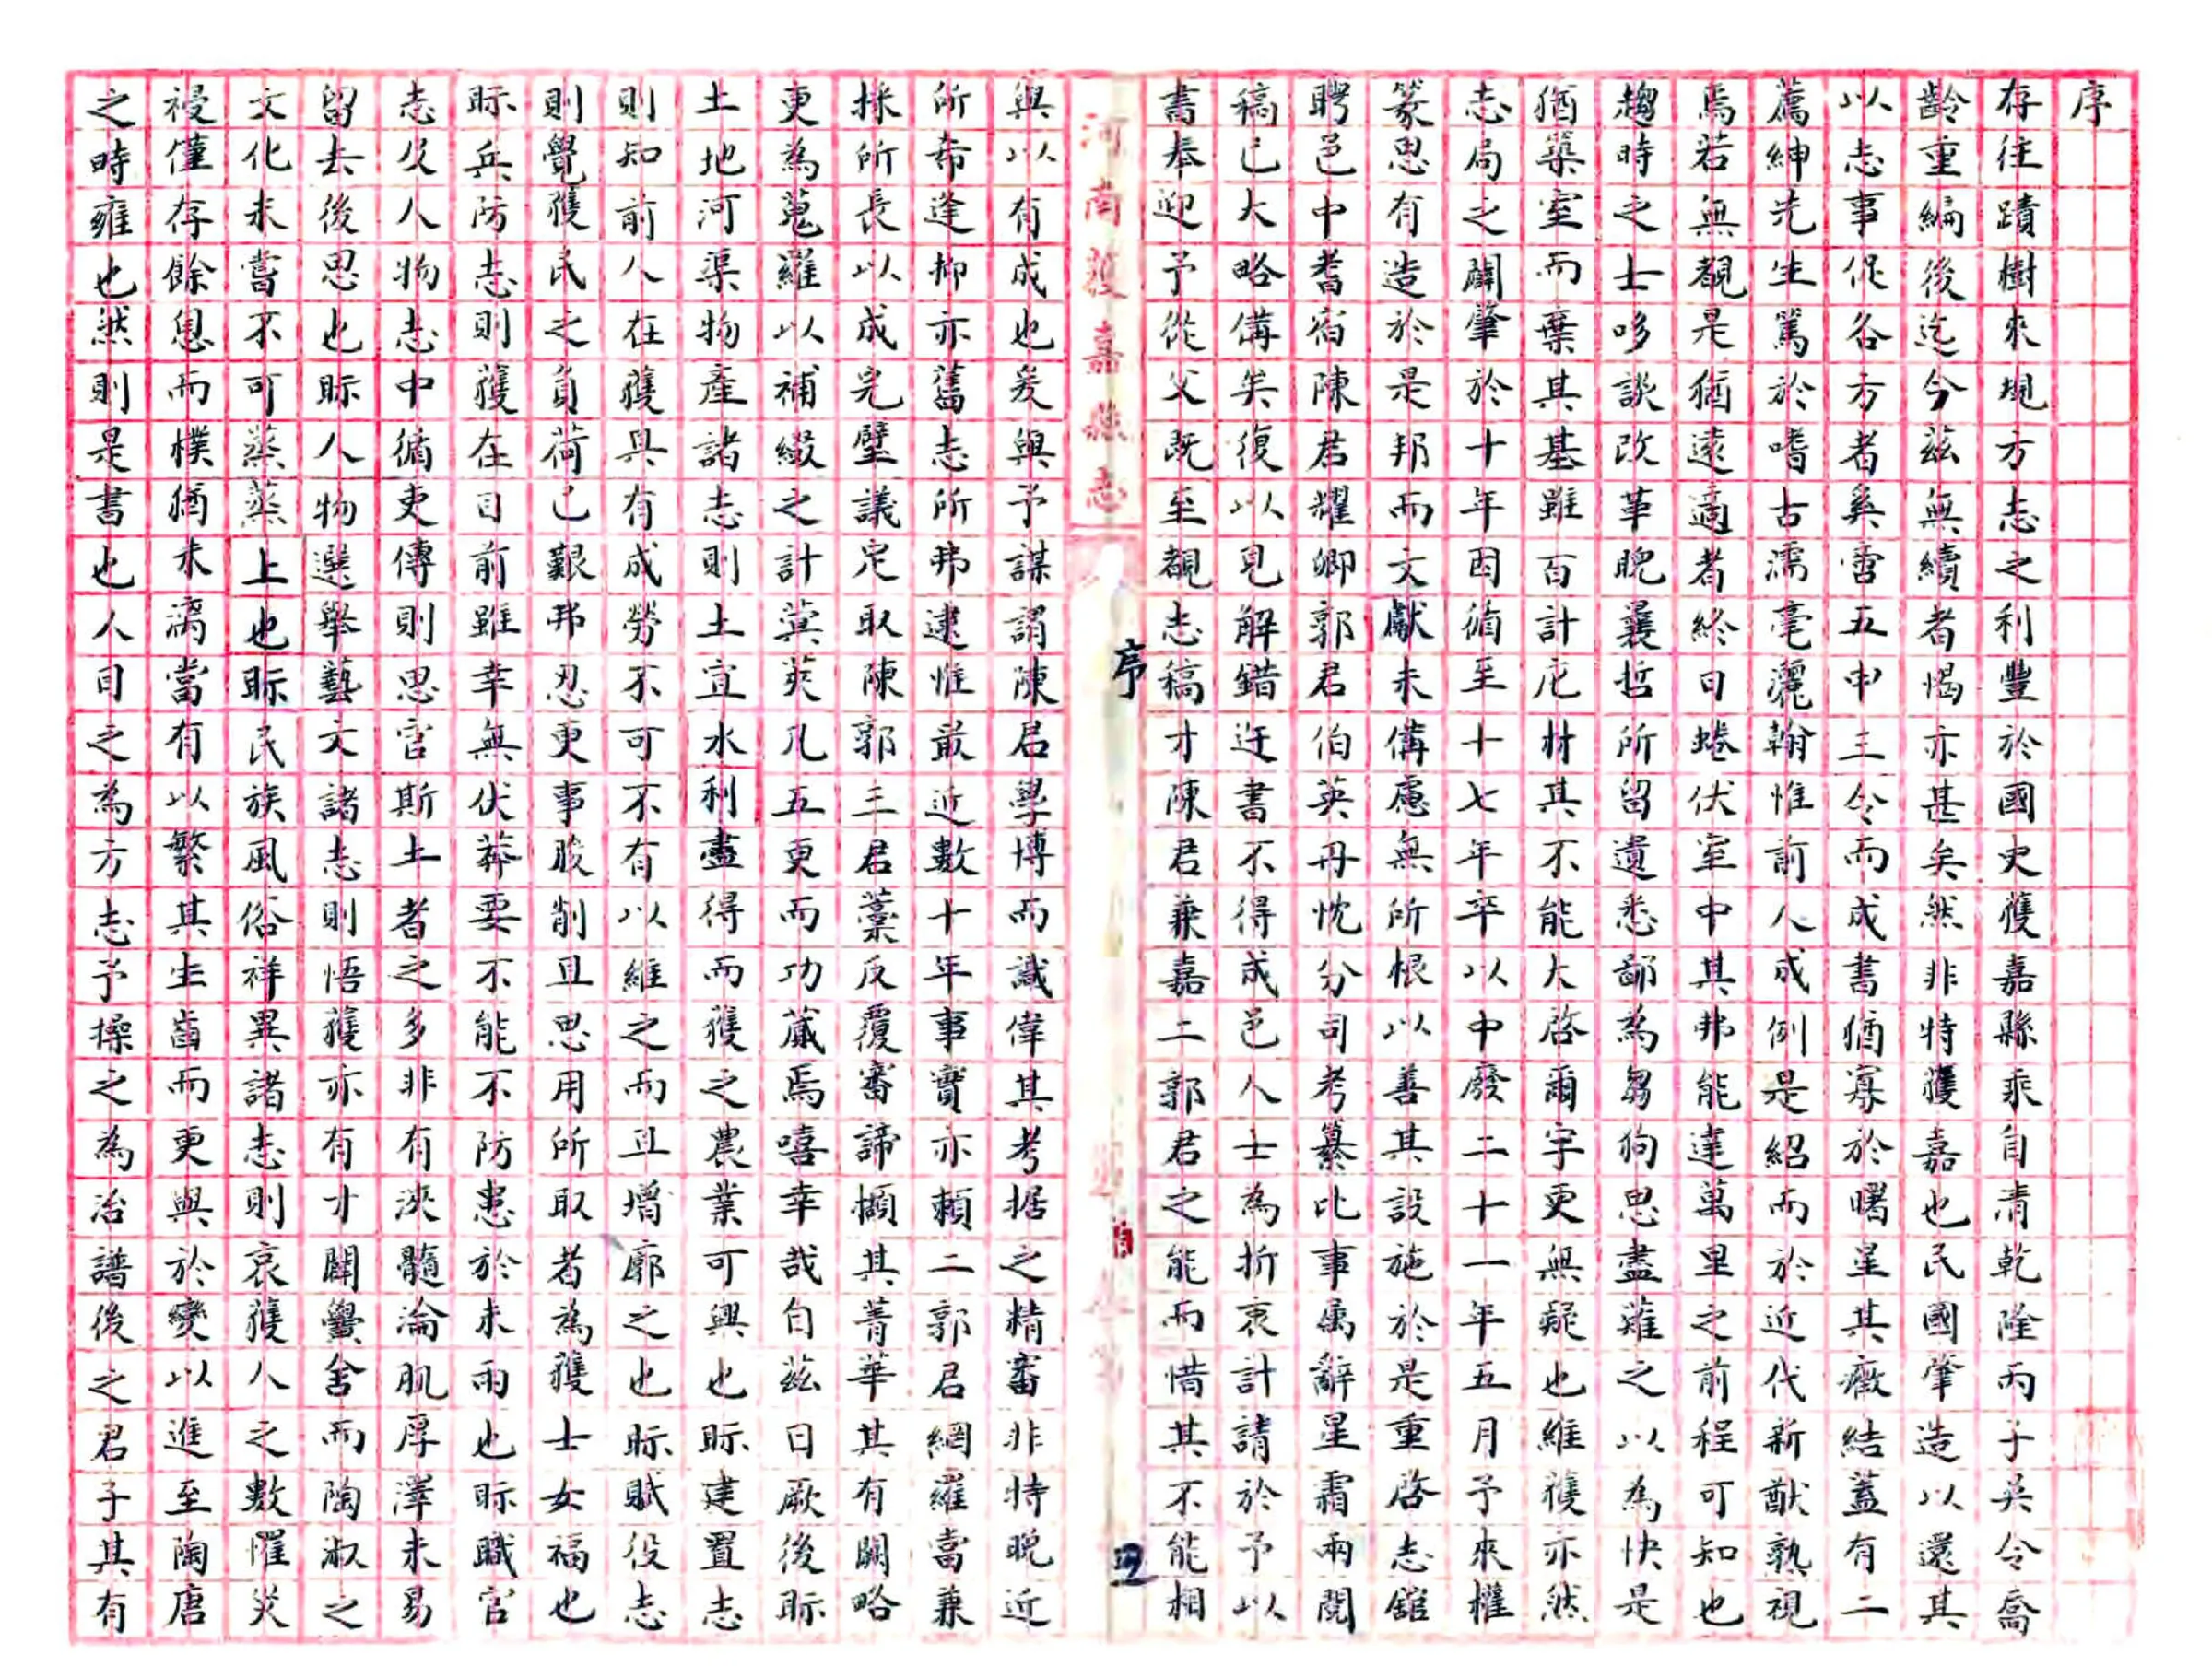 序
存往蹟樹來規方志之利豐於國史獲嘉縣乘自清乾隆丙子吳令喬
齡重編後迄今茲無續者愒亦甚矣然非特獲嘉也民國肇造以還其
以志事促各方者奚啻五申三令而成書猶寥於曙星其癥結蓋有二
薦紳先生篤於嗜古濡毫灑翰惟前人成例是紹而於近代新猷孰視
焉若無覩是猶遠適者終日蜷伏室中其弗能達萬里之前程可知也
趨時之士哆談改革睨曩哲所留遺悉鄙為芻狗思盡薙之以為快是
猶築室而棄其基雖百計庀材其不能大啓爾宇更無疑也維獲亦然
志局之闢肇於十年因循至十七年卒以中廢二十一年五月予來權
篆思有造於是邦而文獻未備慮無所根以善其設施於是重啓志舘
聘邑中耆宿陳君耀卿郭君伯英丹忱分司考纂比事屬辭星霜兩閱
稿已大略備矣復以見解錯迕書不得成邑人士為折衷計請於予以
書奉迎予從父既至覩志稿才陳君兼嘉二郭君之能而惜其不能相
河南獲嘉縣志
序
四
與以有成也爰與予謀謂陳君學博而識偉其考据之精審非特晚近
所希逢抑亦舊志所弗逮惟最近數十年事實亦賴二郭君網羅當兼
採所長以成完璧議定取陳郭三君藁反覆審諦擷其菁華其有闕略
更為蒐羅以補綴之計蓂莢凡五更而功蕆焉嘻幸哉自茲日厥後眎
土地河渠物產諸志則土宜水利盡得而獲之農業可興也眎建置志
則知前人在獲具有成勞不可不有以維之而且增廓之也眎賦役志
則覺獲民之負荷已艱弗忍更事朘削且思用所取者為獲士女福也
眎兵防志則獲在目前雖幸無伏莽要不能不防患於未雨也眎職官
志及人物志中循吏傳則思官斯土者之多非有浹髓淪肌厚澤未易
留去後思也眎人物選舉藝文諸志則悟獲亦有才闢黌舍而陶淑之
文化未嘗不可蒸蒸上也眎民族風俗祥異諸志則哀獲人之數罹災
祲僅存餘息而樸猶未漓當有以繁其生齒而更與於變以進至陶唐
之時雍也然則是書也人目之為方志予操之為治譜後之君子其有